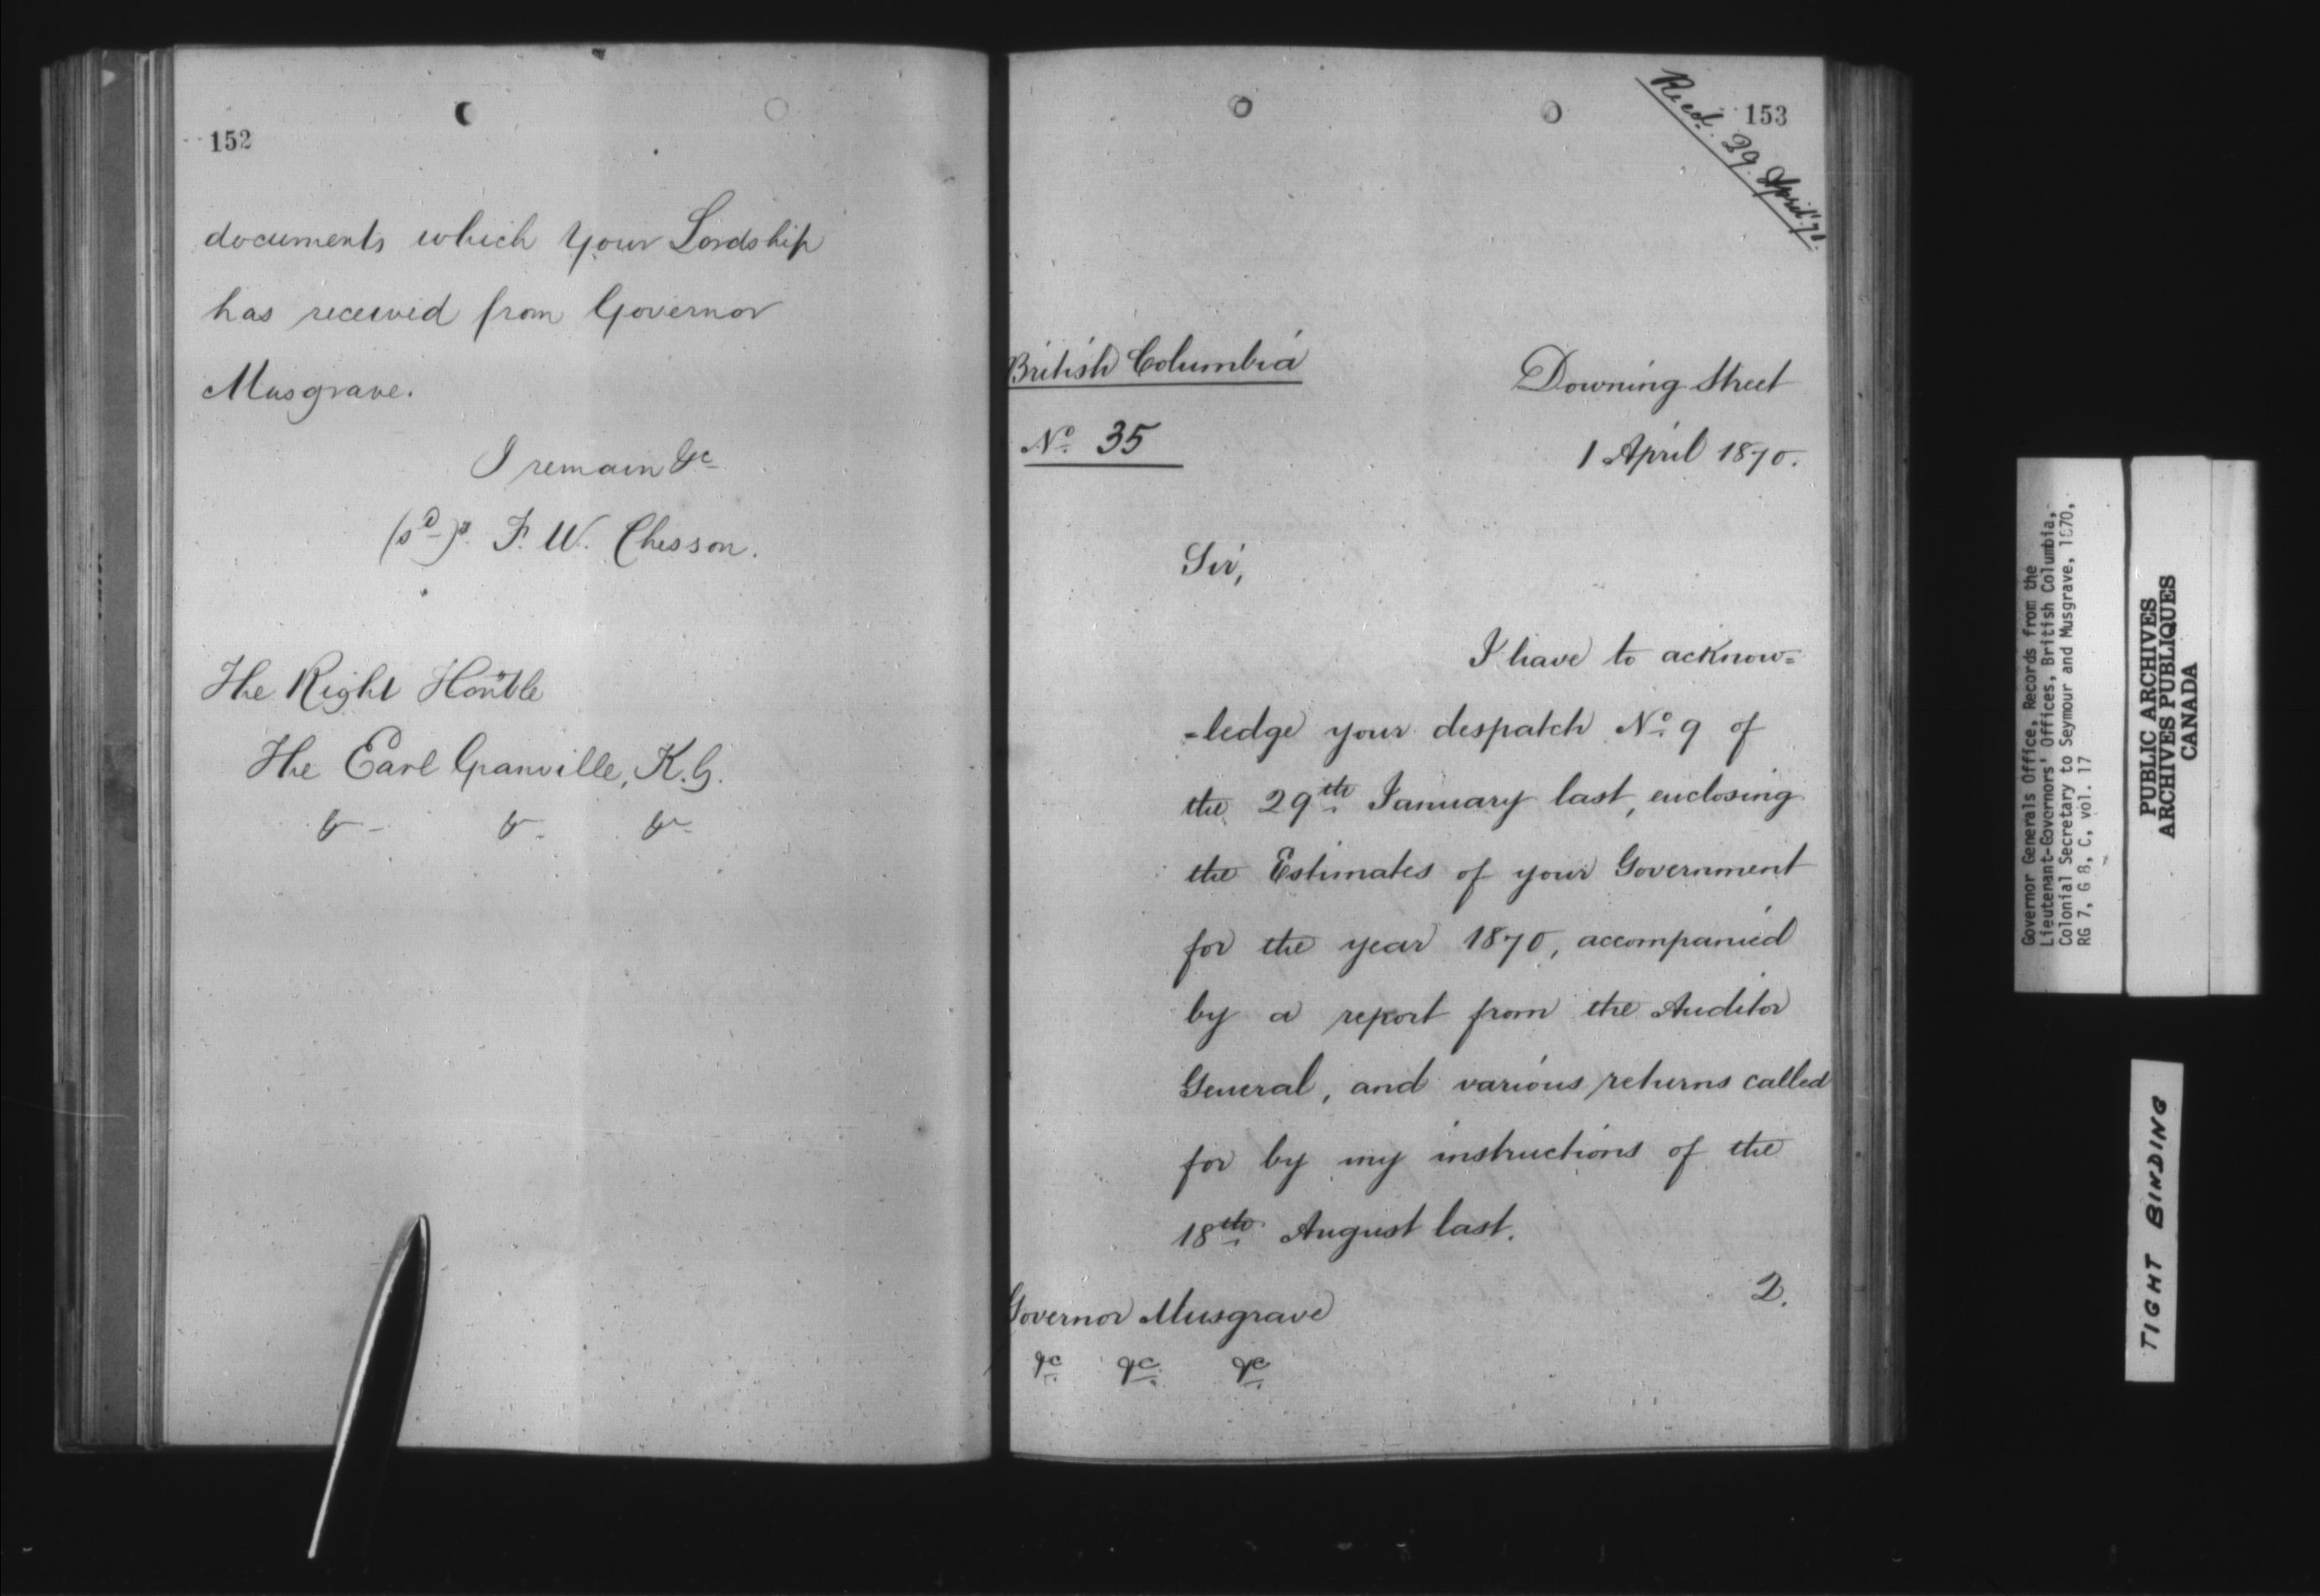 152
documents which Your Lordship
has received from Governor
Musgrave.
I remain &c
(sd) F. W. Chesson.
The Right Honble
The Earl Granville, K.G.
&c &c &c
153
Recd. 29 April '70.
British Columbia
No. 35
Downing Street
1 April 1870.
Sir,
I have to acknow=
=ledge your despatch No. 9 of
the 29th January last, enclosing
the Estimates of your Government
for the year 1870, accompanied
by a report from the Auditor
General, and various returns called
for by my instructions of the
18th August last.
2.
Governor Musgrave
&c &c &c
Governor Generals Office, Records from the
Lieutenant-Governors' Offices, British Columbia,
Colonial Secretary to Seymour and Musgrave, 1870,
RG 7, G 8, C, vol. 17
PUBLIC ARCHIVES
ARCHIVES PUBLIQUES
CANADA
TIGHT BINDING